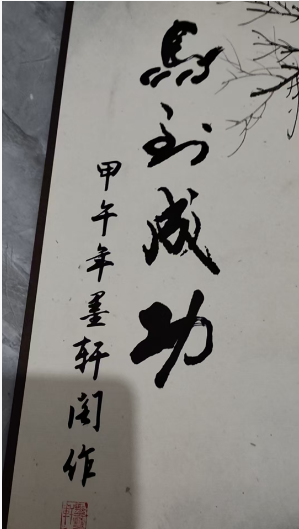 馬到成功
甲午年墨轩阁作